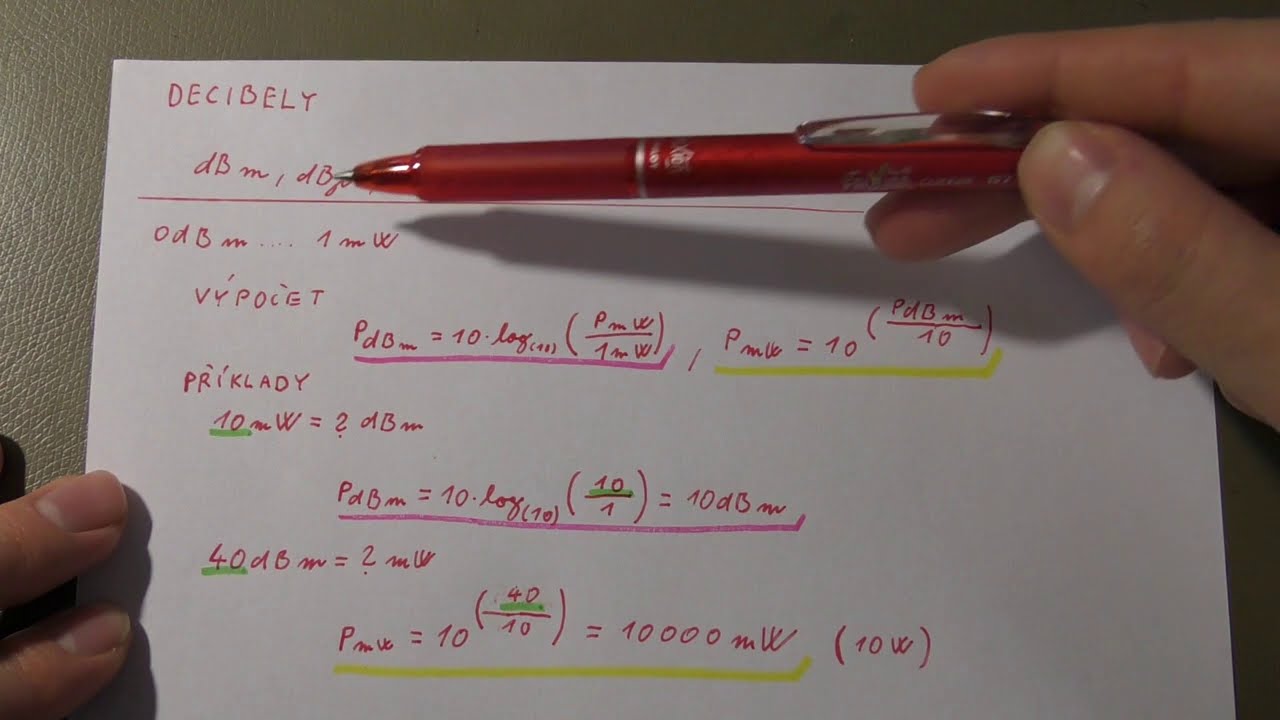 DECIBELY
dBm,
0dBm .... 1mW
VÝPOČET
PdBm = 10·log(10) (PmW/1mW) , PmW = 10^(PdBm/10)
PŘÍKLADY
10mW = ? dBm
PdBm = 10·log(10) (10/1) = 10dBm
40dBm = ? mW
PmW = 10^(40/10) = 10000mW (10W)